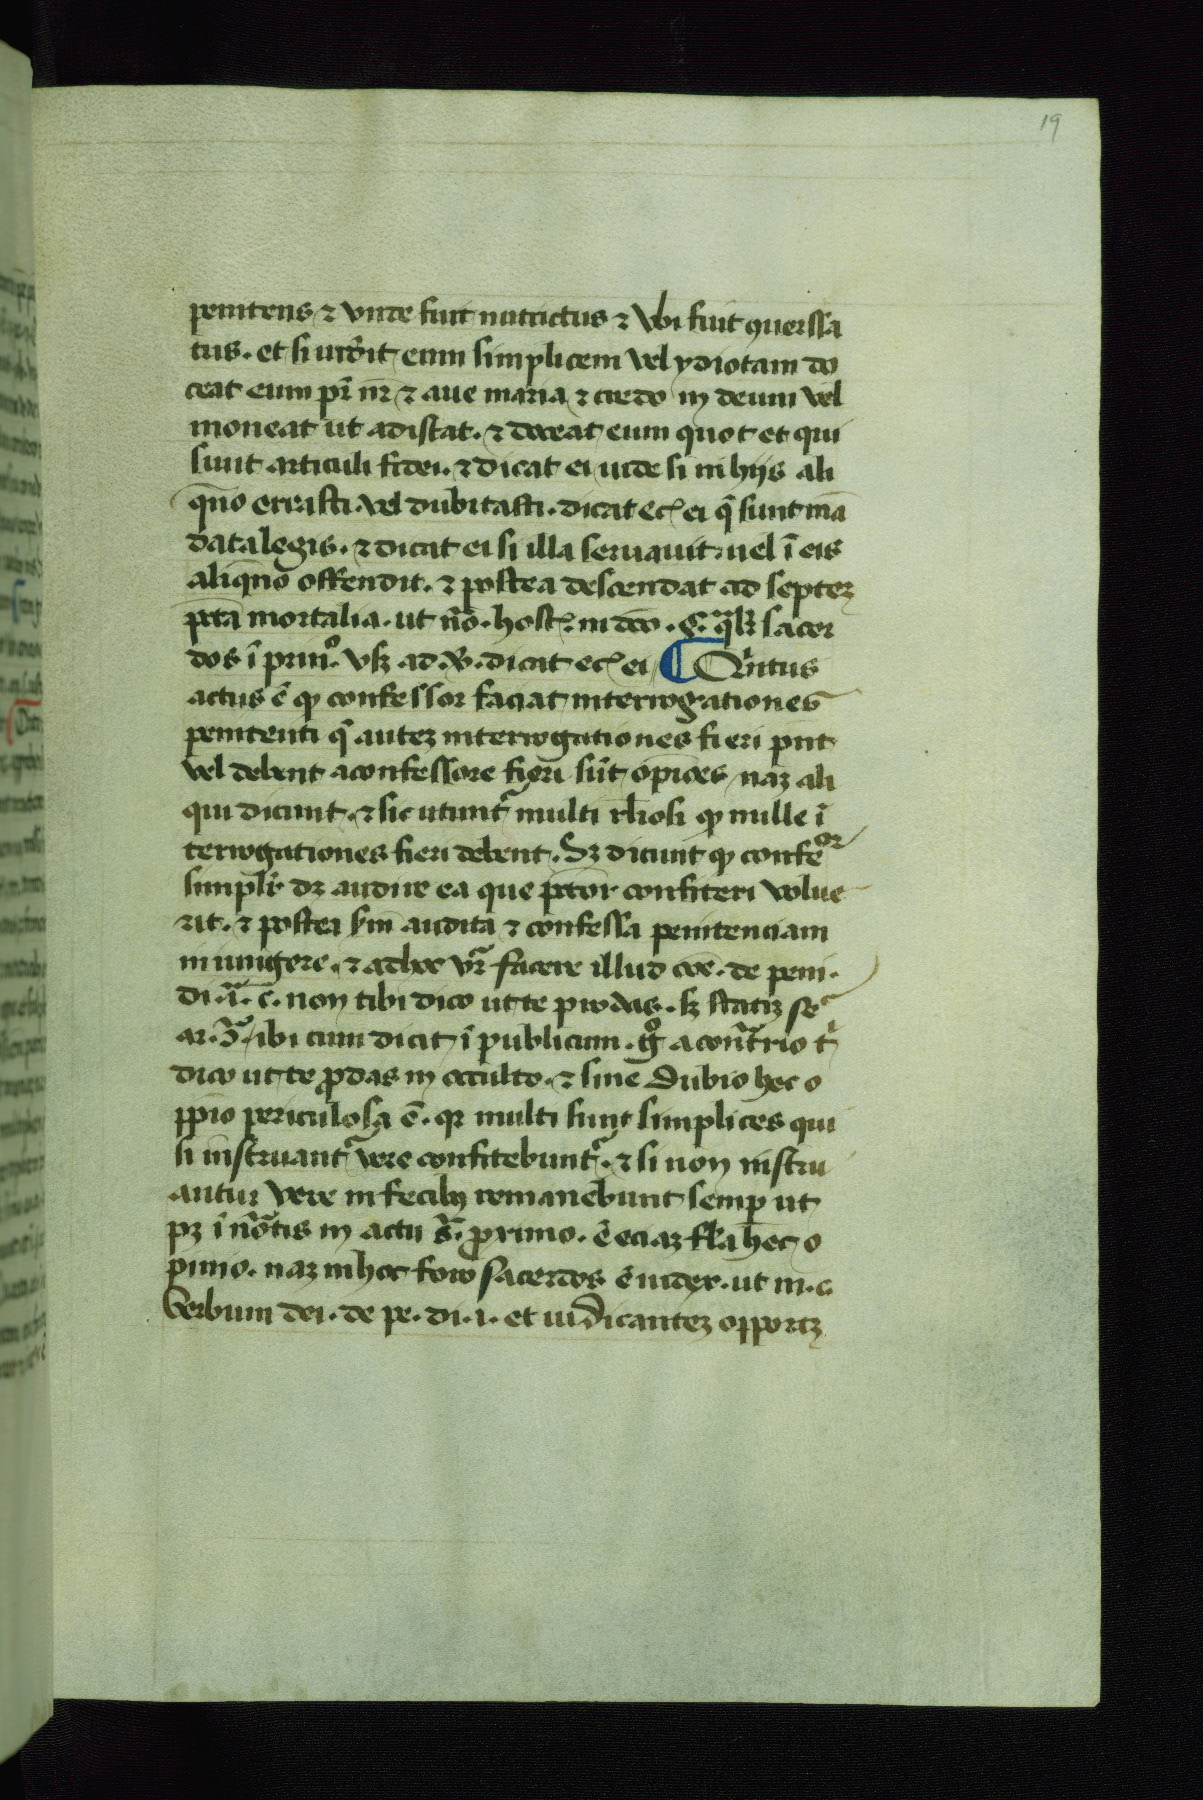 19
penitens ⁊ vnde fuit nutrictus ⁊ vbi fuit ꝯuerssa
tus . et si uid̾it eum simplicem vel ydiotam do
ceat eum pr̄ nr̄ ⁊ aue maria ⁊ credo in deum vel
moneat ut adiscat . ⁊ doceat eum quot et qui
sunt articuli fidei . ⁊ dicat ei uide si in hijs ali
qn̄o errasti . vel dubitasti . dicat ec̄ ei q̄ sunt mā
data legis . ⁊ dicat ei si illa seruauit . uel ī eis
aliqn̄o offendit . ⁊ postea descendat ad septeꝫ
pctā mortalia . ut nō . host̄ . in dc̄o . §. qͣlr̄ sacer
dos ī prinᵒ. vsꝫ ad .ꝟ. dicit ec̄ ei ¶ Qͥntus
actus ē ꝙ confessor faciat interrogationes
penitenti q̄ auteꝫ interrogationes fieri pn̄t
vel debent a confessore fieri sūt opīões naꝫ ali
qui dicunt . ⁊ sic utunt̄ multi rl̄iosi ꝙ nulle ī
terrogationes fieri debent . Sꝫ dicunt ꝙ confeᵒʳ
simplr̄ dꝫ audire ea que pctōr confiteri volue
rit . ⁊ postea scd̄m audita ⁊ confessa penitenciam
iniungere . ⁊ ad hoc vr̄ facere illud coē . de peni .
di . i . c̄ . non tibi dico ut te prodas . sꝫ statiꝫ seͣ
ibi cum dicit ī publicum . gͦ a contͣrio tͥ
dico ut te ꝓdas in occulto . ⁊ sine dubio hec o
ppīo periculosa ē . qꝛ multi sunt simplices qui
si instruant̄ vere confitebunt̄ . ⁊ si non instru
antur vere in fecibꝫ remanebunt semꝑ ut
pꝫ ī nōtis in actu s̄ . ꝓximo . ē eciaꝫ fl̄a hec o
pinio . naꝫ in hoc foro sacerdos ē iudex . ut in . c.
verbum dei . de pe . di . i . et iudicanteꝫ opportꝫ